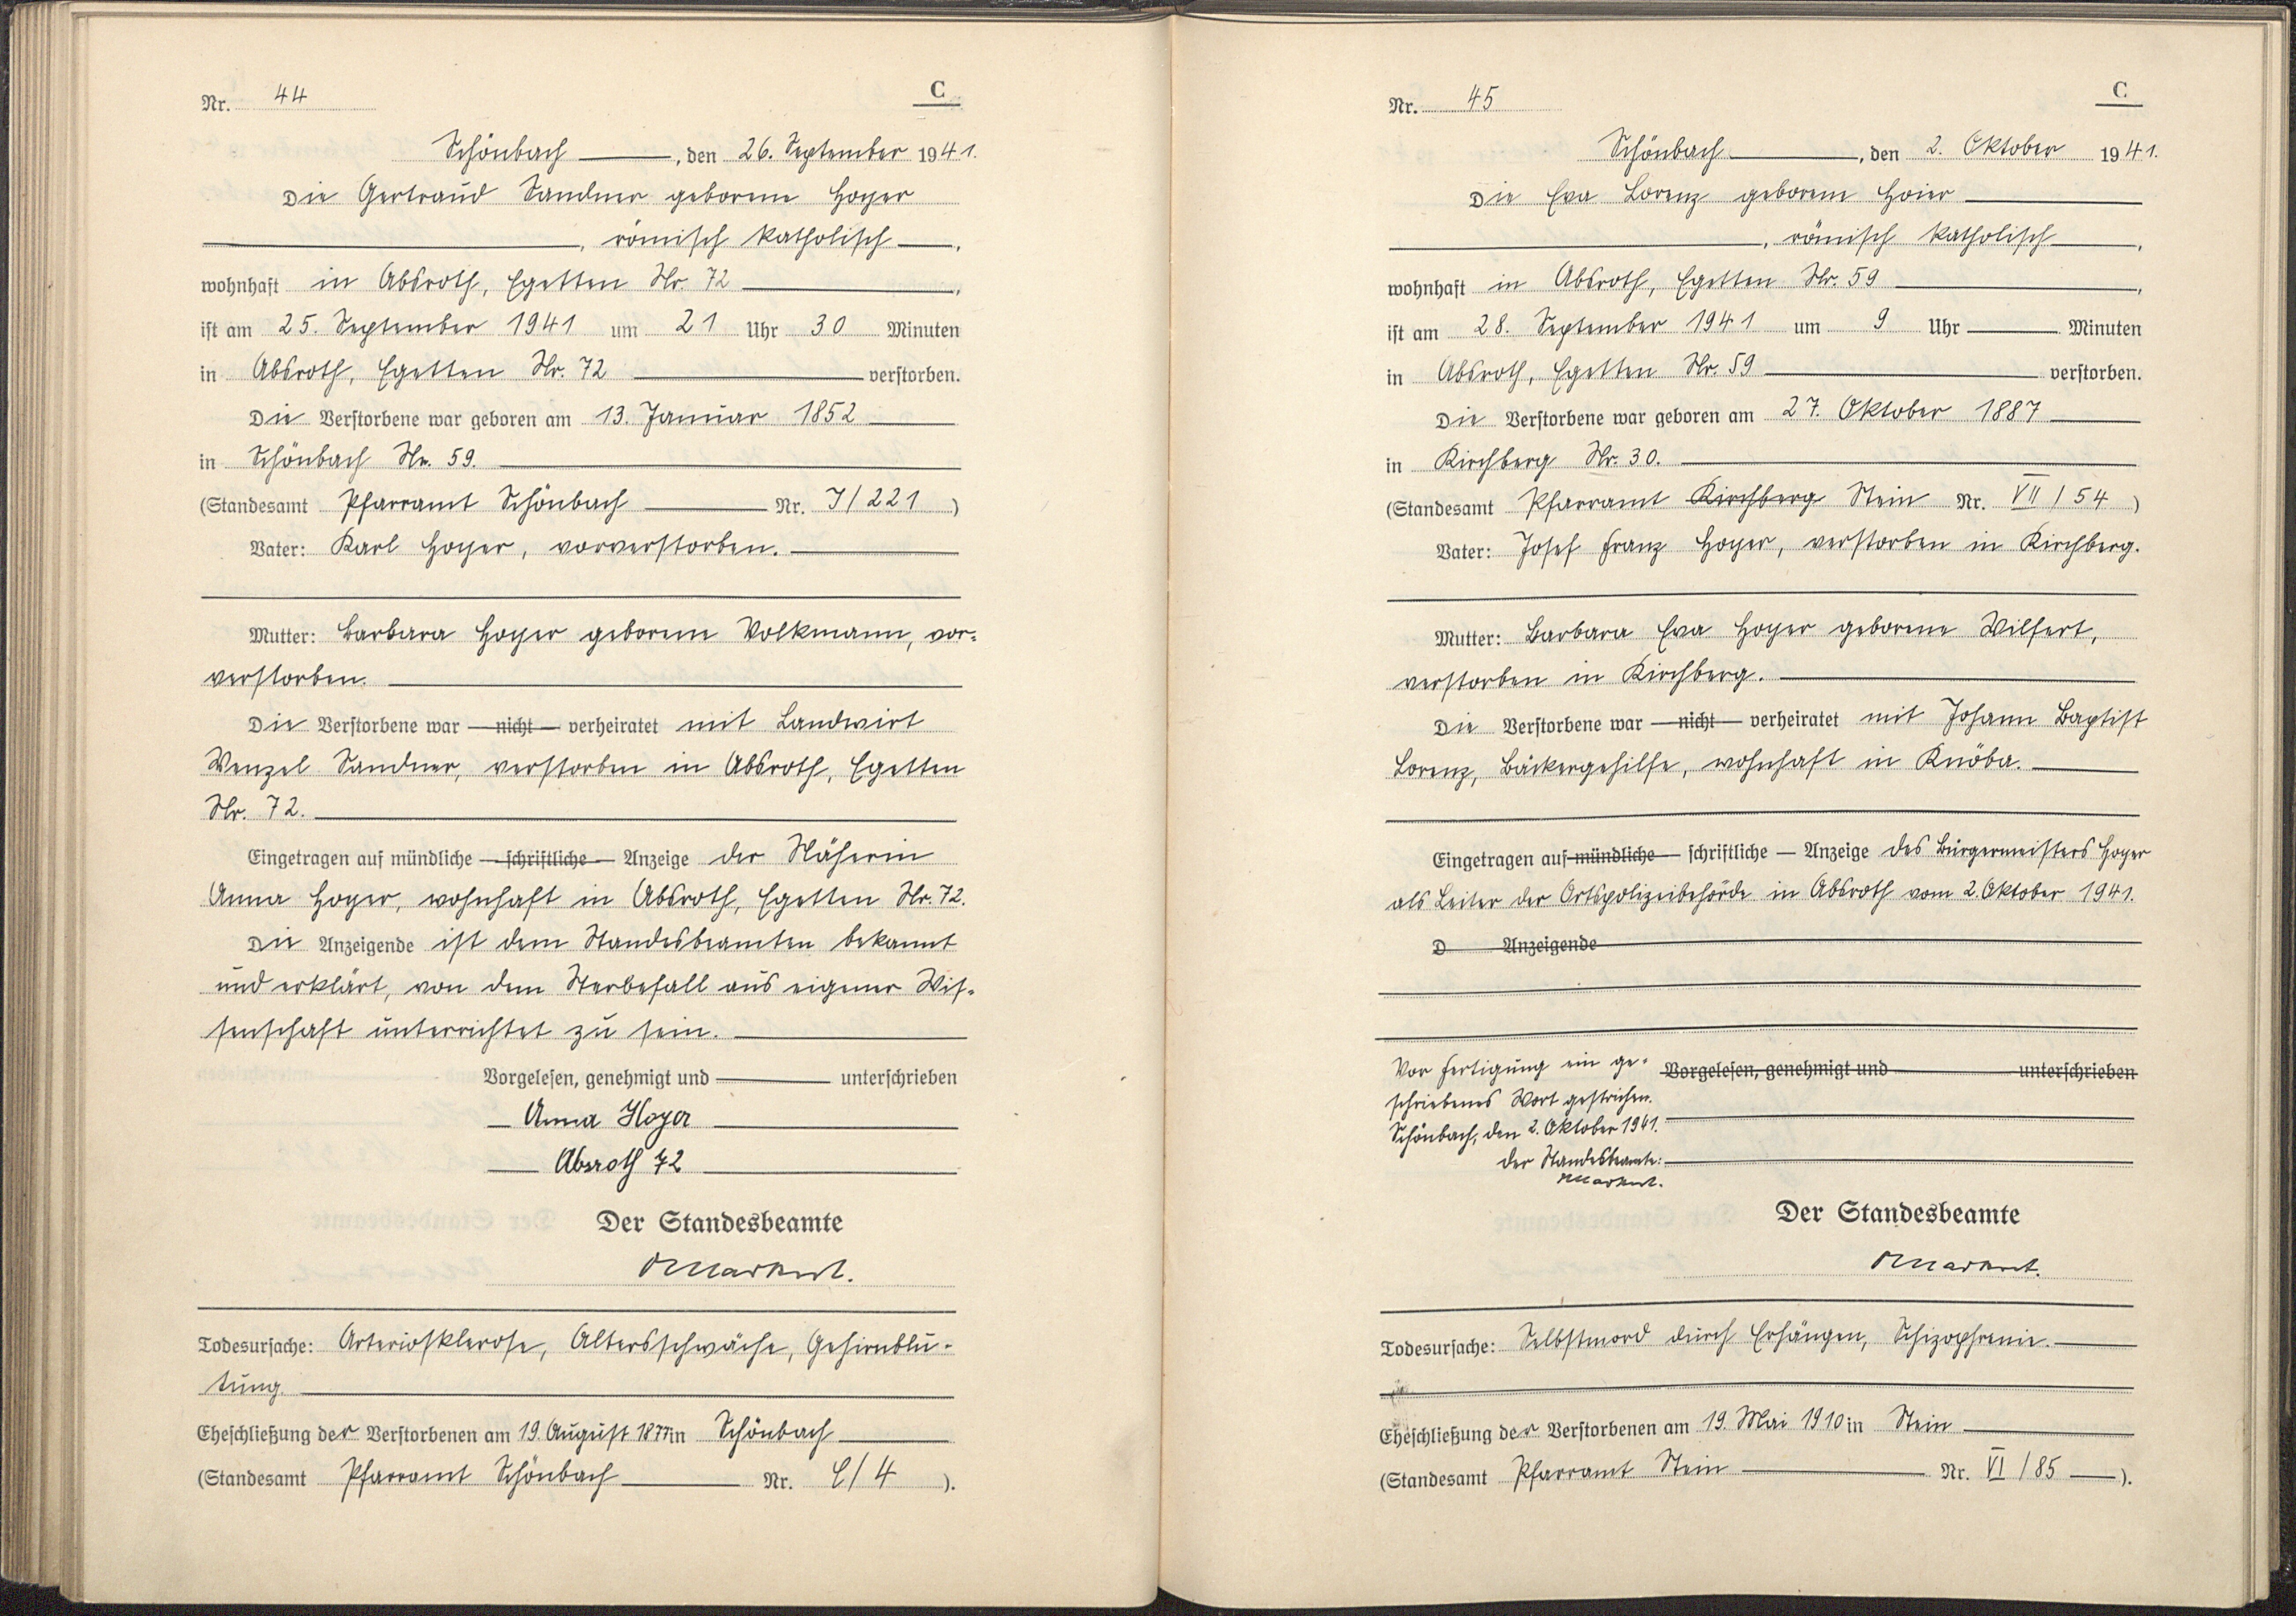 Nr. 44
C
Schönbach, den 26. September 1941.
Die Gertraud Sandner geborene Hoyer
, römisch katholisch,
wohnhaft in Absroth, Egetten Nr. 72,
ist am 25. September 1941 um 21 Uhr 30 Minuten
in Absroth, Egetten Nr. 72 verstorben.
Die Verstorbene war geboren am 13. Januar 1852
in Schönbach Nr. 59.
(Standesamt Pfarramt Schönbach Nr. J/221)
Vater: Karl Hoyer, vorverstorben.
Mutter: Barbara Hoyer geborene Volkmann, vor=
verstorben.
Die Verstorbene war — nicht — verheiratet mit Landwirt
Wenzel Sandner, verstorben in Absroth, Egetten
Nr. 72.
Eingetragen auf mündliche — schriftliche — Anzeige der Näherin
Anna Hoyer, wohnhaft in Absroth, Egetten Nr. 72.
Die Anzeigende ist dem Standesbeamten bekannt
und erklärt, von dem Sterbefall aus eigener Wis=
senschaft unterrichtet zu sein.
Vorgelesen, genehmigt und unterschrieben
Anna Hoyer
Absroth 72
Der Standesbeamte
Markert.
Todesursache: Arteriosklerose, Altersschwäche, Gehirnblu=
tung.
Eheschließung der Verstorbenen am 19. August 1877 in Schönbach
(Standesamt Pfarramt Schönbach Nr. C/4).
Nr. 45
C
Schönbach, den 2. Oktober 1941.
Die Eva Lorenz geborene Hoier
, römisch katholisch,
wohnhaft in Absroth, Egetten Nr. 59,
ist am 28. September 1941 um 9 Uhr Minuten
in Absroth, Egetten Nr. 59 verstorben.
Die Verstorbene war geboren am 27. Oktober 1887
in Kirchberg Nr. 30.
(Standesamt Pfarramt Kirchberg Stein Nr. VII/54)
Vater: Josef Franz Hoyer, verstorben in Kirchberg.
Mutter: Barbara Eva Hoyer geborene Wilfert,
verstorben in Kirchberg.
Die Verstorbene war — nicht — verheiratet mit Johann Baptist
Lorenz, Bäckergehilfe, wohnhaft in Knöba.
Eingetragen auf mündliche — schriftliche — Anzeige des Bürgermeisters Hoyer
als Leiter der Ortspolizeibehörde in Absroth vom 2. Oktober 1941.
D Anzeigende
Vor Fertigung ein ge=
schriebenes Wort gestrichen.
Schönbach, den 2. Oktober 1941.
Der Standesbeamte:
Markert.
Vorgelesen, genehmigt und unterschrieben
Der Standesbeamte
Markert.
Todesursache: Selbstmord durch Erhängen, Schizophrenie.
Eheschließung der Verstorbenen am 19. Mai 1910 in Stein
(Standesamt Pfarramt Stein Nr. VI/85).